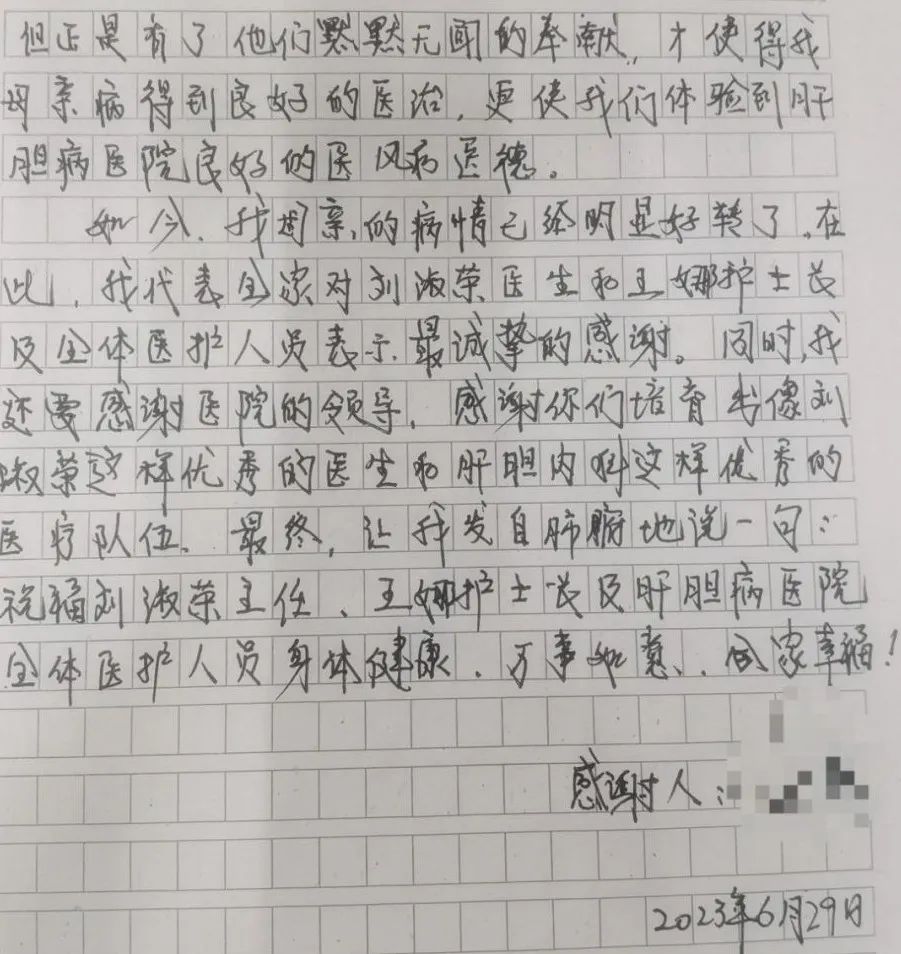 但正是有了他们默默无闻的奉献，才使得我
母亲病得到良好的医治，更使我们体验到肝
胆病医院良好的医风和医德。
如今，我母亲的病情已经明显好转了。在
此，我代表全家对刘淑荣医生和王娜护士长
及全体医护人员表示最诚挚的感谢。同时，我
还要感谢医院的领导，感谢你们培育出像刘
淑荣这样优秀的医生和肝胆内科这样优秀的
医疗队伍。最终，让我发自肺腑地说一句：
祝福刘淑荣主任、王娜护士长及肝胆病医院
全体医护人员身体健康，万事如意，合家幸福！
感谢人：
2023年6月29日